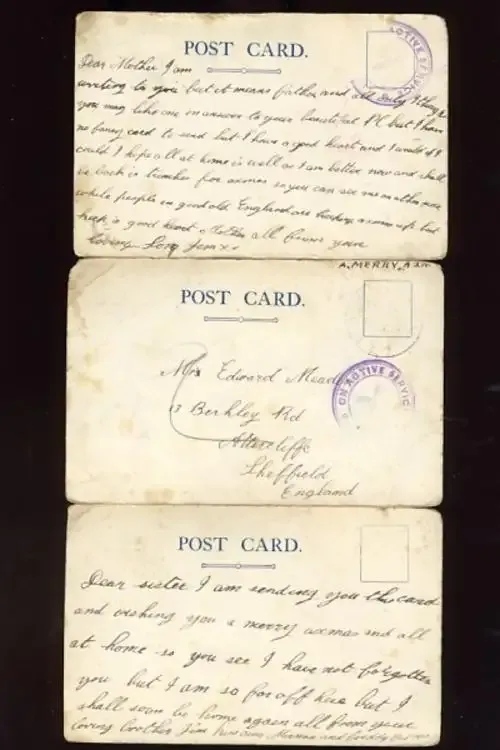 POST CARD.
ACTIVE SERVICE
Dear Mother I am
writing to you but it means father and all only I thought
you may like one in answer to your beautiful PC but I have
no fancy card to send but I have a good heart and I would if I
could I hope all at home is well as I am better now and shall
be back in trenches for axmas so you can see me in
while people in good old England are keeping axmas up but
keep in good heart Mother all from your
loving Son Jim x x
A. MERRY. A
POST CARD.
ON ACTIVE SERVICE
Mrs Edward Meade
13 Berkley Rd
Attercliffe
Sheffield
England
POST CARD.
Dear sister I am sending you this card
and wishing you a merry axmas and all
at home so you see I have not forgotten
you but I am so far off here but I
shall soon be home again all from your
loving brother Jim and